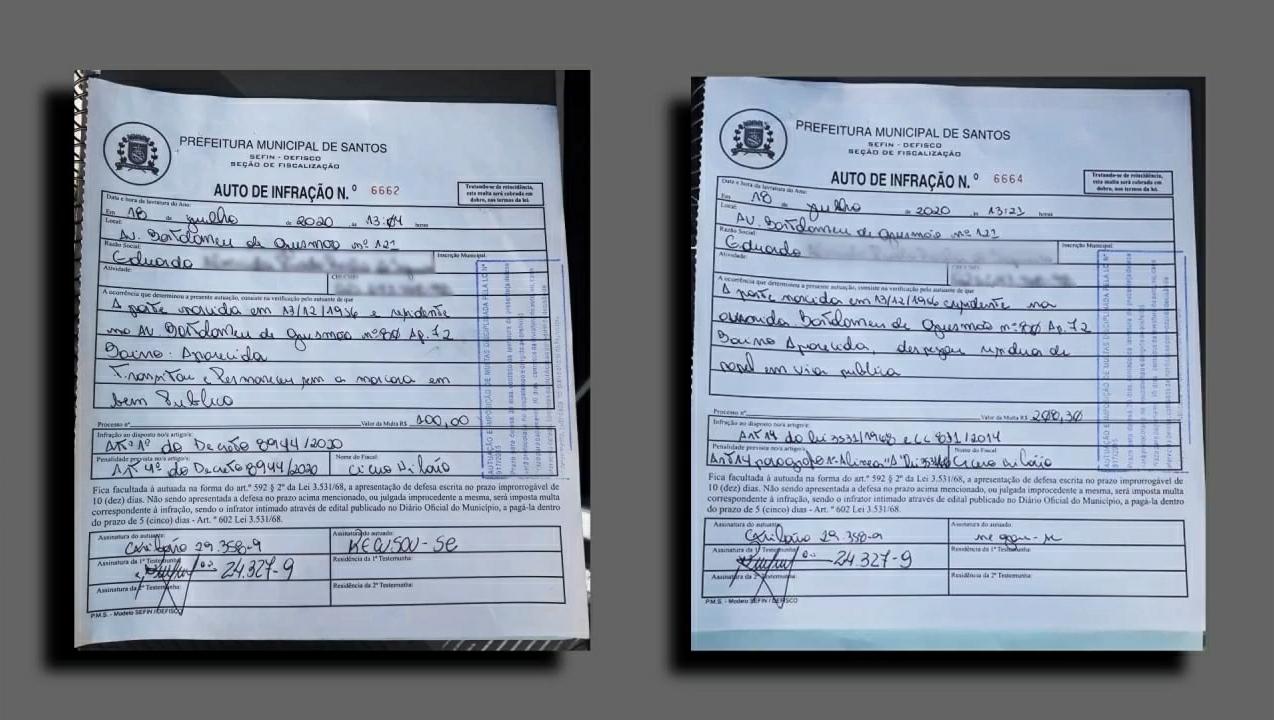 PREFEITURA MUNICIPAL DE SANTOS
SEFIN - DEFISCO
SEÇÃO DE FISCALIZAÇÃO
AUTO DE INFRAÇÃO N.º 6662
Tratando-se de reincidência,
esta multa será cobrada em
dobro, nos termos da lei.
Data e hora da lavratura do Auto:
Em 18 de julho de 2020 13:04 horas
Local:
Av. Bartolomeu de Gusmão nº 121
Razão Social: Inscrição Municipal:
Eduardo
Atividade:
A ocorrência que determinou a presente autuação, consiste na verificação pelo autuante de que
A parte nascida em 13/12/1956 e residente
no Av Bartolomeu de Gusmão nº Ap. 72
Bairro: Aparecida
Transitar e Permanecer sem a mascara em
bem Publico
Processo nº Valor da Multa R$ 100,00
Infração ao disposto no/s artigo/s:
Artº 1º do Decreto 8944/2020
Penalidade prevista no/s artigo/s: Nome do Fiscal:
Art 4º do Decreto 8944/2020 Cicero Hilário
Fica facultada à autuada na forma do art.º 592 § 2º da Lei 3.531/68, a apresentação de defesa escrita no prazo improrrogável de
10 (dez) dias. Não sendo apresentada a defesa no prazo acima mencionado, ou julgada improcedente a mesma, será imposta multa
correspondente à infração, sendo o infrator intimado através de edital publicado no Diário Oficial do Município, a pagá-la dentro
do prazo de 5 (cinco) dias - Art. º 602 Lei 3.531/68.
Assinatura do autuante: Assinatura do autuado:
29.358-9 RECUSOU-SE
Assinatura da 1ª Testemunha: Residência da 1ª Testemunha:
24.327-9
Assinatura da 2ª Testemunha: Residência da 2ª Testemunha:
P.M.S. - Modelo SEFIN / DEFISCO
PREFEITURA MUNICIPAL DE SANTOS
SEFIN - DEFISCO
SEÇÃO DE FISCALIZAÇÃO
AUTO DE INFRAÇÃO N.º 6664
Tratando-se de reincidência,
esta multa será cobrada em
dobro, nos termos da lei.
Data e hora da lavratura do Auto:
Em 18 de julho de 2020 13:21 horas
Local:
AV. Bartolomeu de Gusmão nº 121
Razão Social: Inscrição Municipal:
Eduardo
Atividade:
A ocorrência que determinou a presente autuação, consiste na verificação pelo autuante de que
A parte nascida em 13/12/1956 residente na
avenida Bartolomeu de Gusmão nº Ap. 72
Bairro Aparecida, despejou residuo de
papel em via publica
Processo nº Valor da Multa R$ 208,30
Infração ao disposto no/s artigo/s:
Art 14 do lei 3531/1968 e LC 831/2014
Penalidade prevista no/s artigo/s: Nome do Fiscal:
Art 14 paragrafo Alinea "A" lei Cicero Hilário
Fica facultada à autuada na forma do art.º 592 § 2º da Lei 3.531/68, a apresentação de defesa escrita no prazo improrrogável de
10 (dez) dias. Não sendo apresentada a defesa no prazo acima mencionado, ou julgada improcedente a mesma, será imposta multa
correspondente à infração, sendo o infrator intimado através de edital publicado no Diário Oficial do Município, a pagá-la dentro
do prazo de 5 (cinco) dias - Art. º 602 Lei 3.531/68.
Assinatura do autuante: Assinatura do autuado:
29.358-9
Assinatura da 1ª Testemunha: Residência da 1ª Testemunha:
24.327-9
Assinatura da 2ª Testemunha: Residência da 2ª Testemunha:
P.M.S. - Modelo SEFIN / DEFISCO